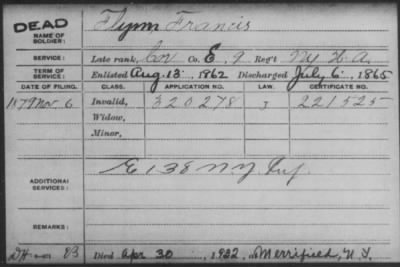 DEAD
NAME OF SOLDIER:
Flynn Francis
SERVICE:
Late rank, Cor Co. E, 9 Reg't N.Y. H.A.
TERM OF SERVICE:
Enlisted Aug. 13, 1862 Discharged July 6, 1865
DATE OF FILING. CLASS. APPLICATION NO. LAW. CERTIFICATE NO.
1879 Nov. 6 Invalid, 320278 221525
Widow,
Minor,
ADDITIONAL SERVICES:
E 138 N.Y. Inf.
REMARKS:
Died Apr 30, 1922, at Merrifield, N.Y.